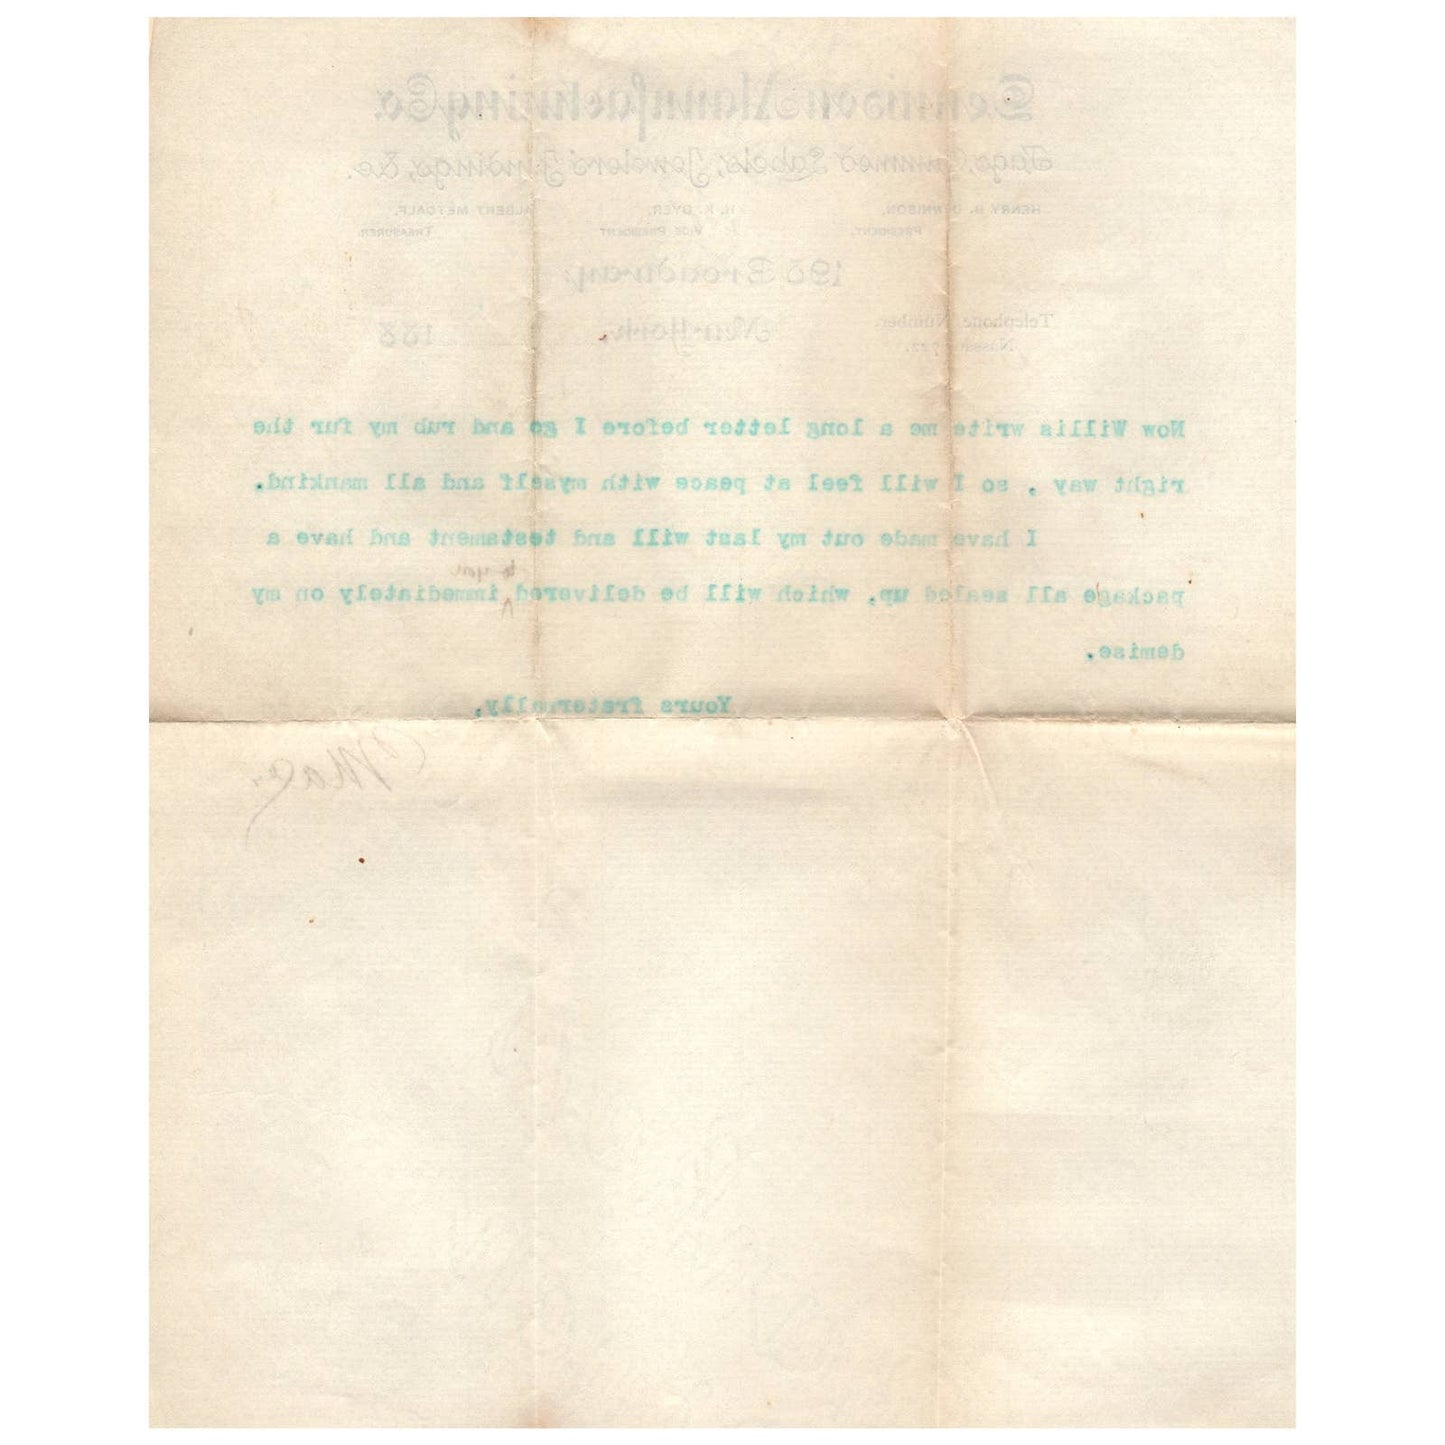 Dennison Manufacturing Co.
Tags, Gummed Labels, Jewelers' Findings, &c.
HENRY B. DENNISON, H. K. DYER, ALBERT METCALF,
PRESIDENT. VICE PRESIDENT TREASURER.
195 Broadway,
Telephone Number. New York, 188
Nassau
Now Willis write me a long letter before I go and rub my fur the
right way , so I will feel at peace with myself and all mankind.
I have made out my last will and testament and have a
to you
package all sealed up, which will be delivered immediately on my
demise.
Yours fraternally,